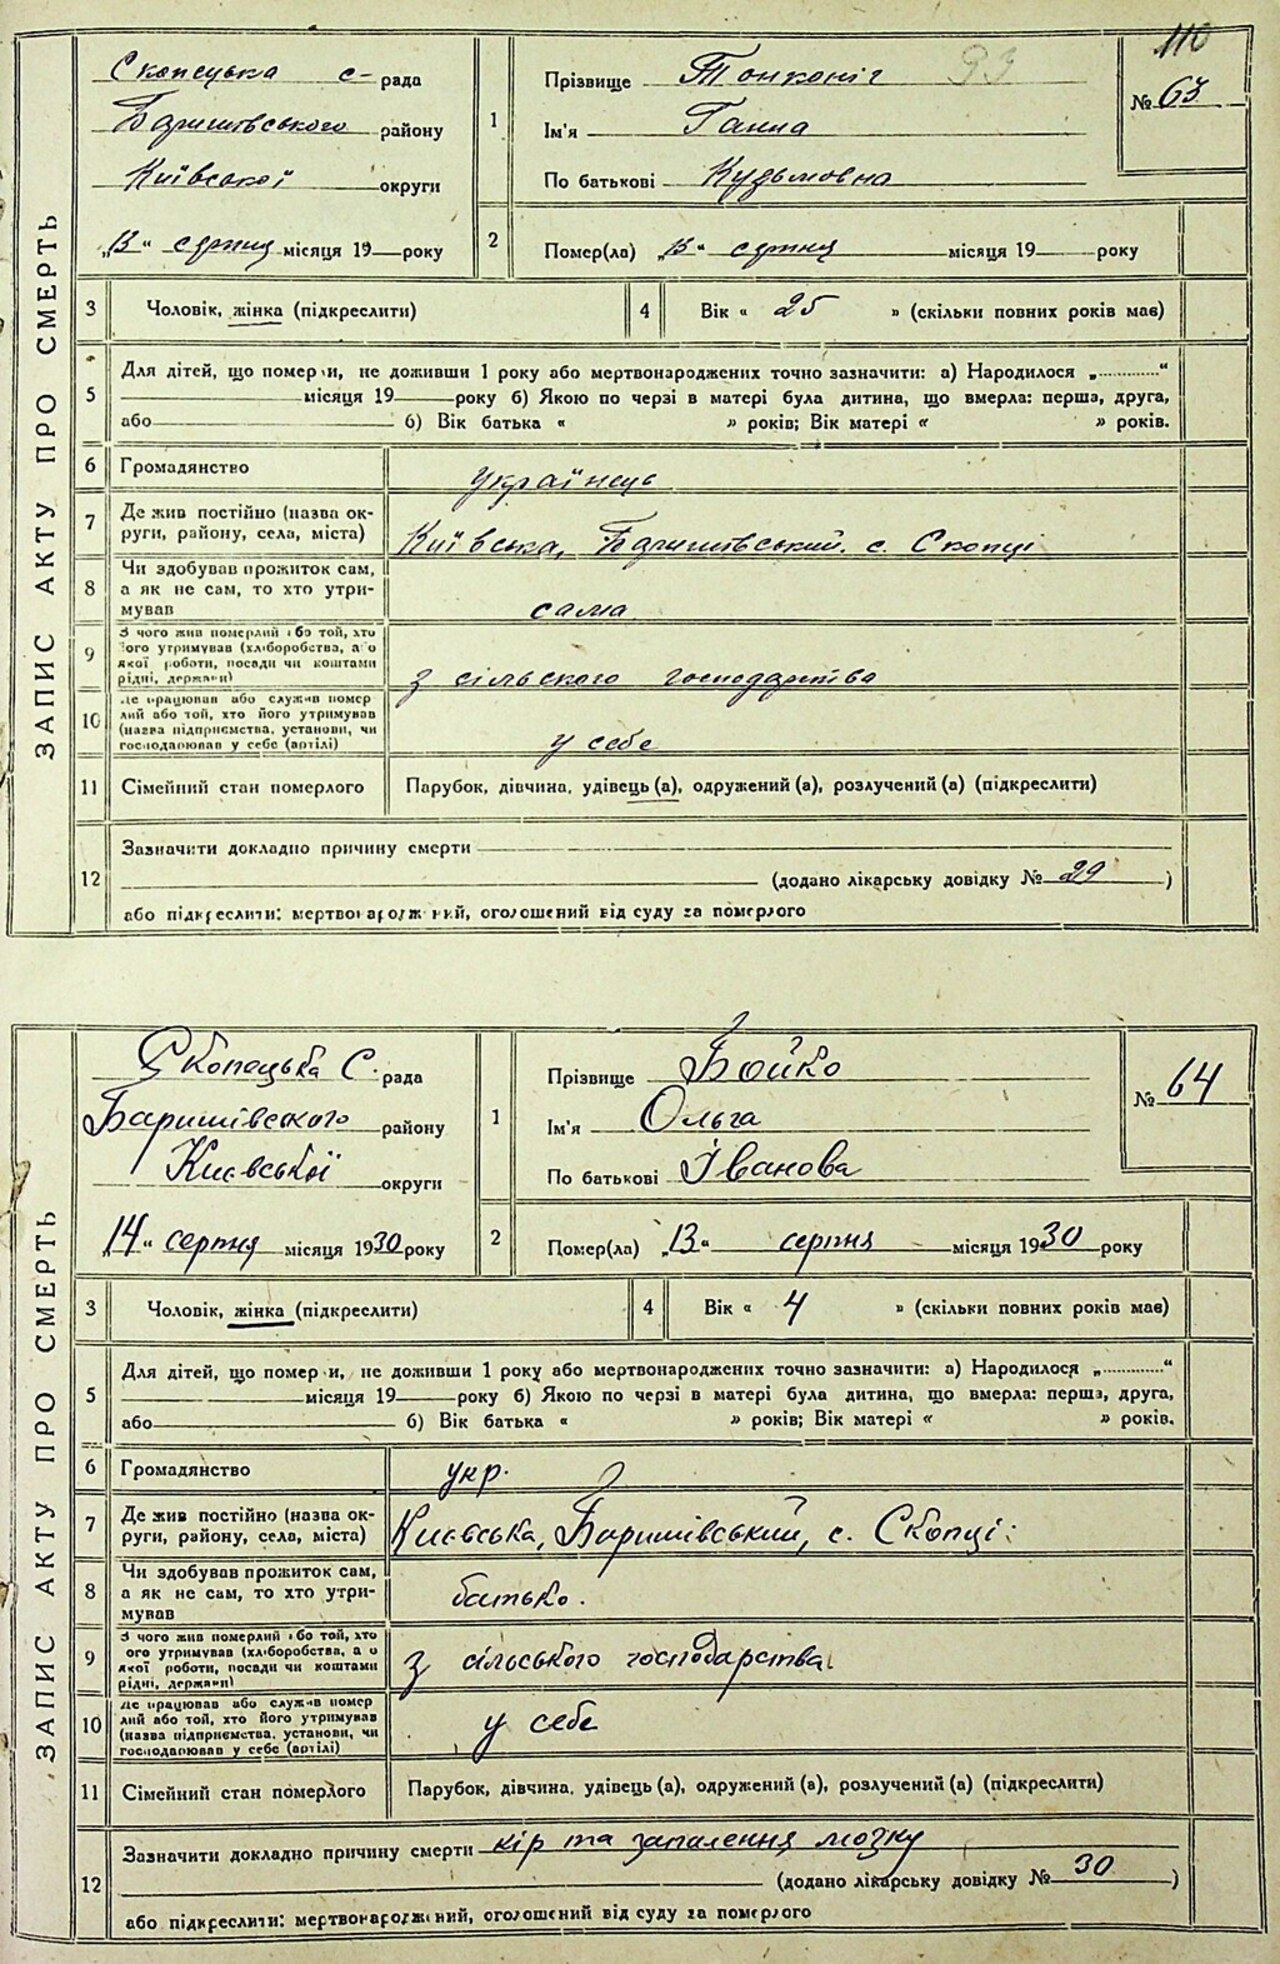 110
ЗАПИС АКТУ ПРО СМЕРТЬ
Скопецька с- рада
Баришівського району
Київської округи
„13“ серпня місяця 19 року
1
Прізвище Тонконіг 93
Ім'я Ганна
По батькові Кузьмовна
№ 63
2
Помер(ла) „13“ серпня місяця 19 року
3 Чоловік, жінка (підкреслити)
4 Вік « 25 » (скільки повних років має)
5 Для дітей, що померли, не доживши 1 року або мертвонароджених точно зазначити: а) Народилося „............“
місяця 19 року б) Якою по черзі в матері була дитина, що вмерла: перша, друга,
або б) Вік батька « » років; Вік матері « » років.
6 Громадянство українець
7 Де жив постійно (назва ок-
руги, району, села, міста) Київська, Баришівський. с. Скопці
8 Чи здобував прожиток сам,
а як не сам, то хто утри-
мував сама
9 З чого жив померлий або той, хто
його утримував (хліборобства, або
якої роботи, посади чи коштами
рідні, держави) з сільского господарства
10 Де працював або служив помер
лий або той, хто його утримував
(назва підприємства, установи, чи
господарював у себе (артілі) у себе
11 Сімейний стан померлого Парубок, дівчина, удівець (а), одружений (а), розлучений (а) (підкреслити)
12 Зазначити докладно причину смерти
(додано лікарську довідку № 29 )
або підкреслити: мертвонароджений, оголошений від суду за померлого
ЗАПИС АКТУ ПРО СМЕРТЬ
Скопецька С. рада
Баришівського району
Києвської округи
„14“ серпня місяця 1930 року
1
Прізвище Бойко
Ім'я Ольга
По батькові Іванова
№ 64
2
Помер(ла) „13“ серпня місяця 1930 року
3 Чоловік, жінка (підкреслити)
4 Вік « 4 » (скільки повних років має)
5 Для дітей, що померли, не доживши 1 року або мертвонароджених точно зазначити: а) Народилося „............“
місяця 19 року б) Якою по черзі в матері була дитина, що вмерла: перша, друга,
або б) Вік батька « » років; Вік матері « » років.
6 Громадянство укр.
7 Де жив постійно (назва ок-
руги, району, села, міста) Києвська, Баришівський, с. Скопці.
8 Чи здобував прожиток сам,
а як не сам, то хто утри-
мував батько.
9 З чого жив померлий або той, хто
його утримував (хліборобства, або
якої роботи, посади чи коштами
рідні, держави) з сільського господарства
10 Де працював або служив помер
лий або той, хто його утримував
(назва підприємства, установи, чи
господарював у себе (артілі) у себе
11 Сімейний стан померлого Парубок, дівчина, удівець (а), одружений (а), розлучений (а) (підкреслити)
12 Зазначити докладно причину смерти кір та запалення мозку
(додано лікарську довідку № 30 )
або підкреслити: мертвонароджений, оголошений від суду за померлого